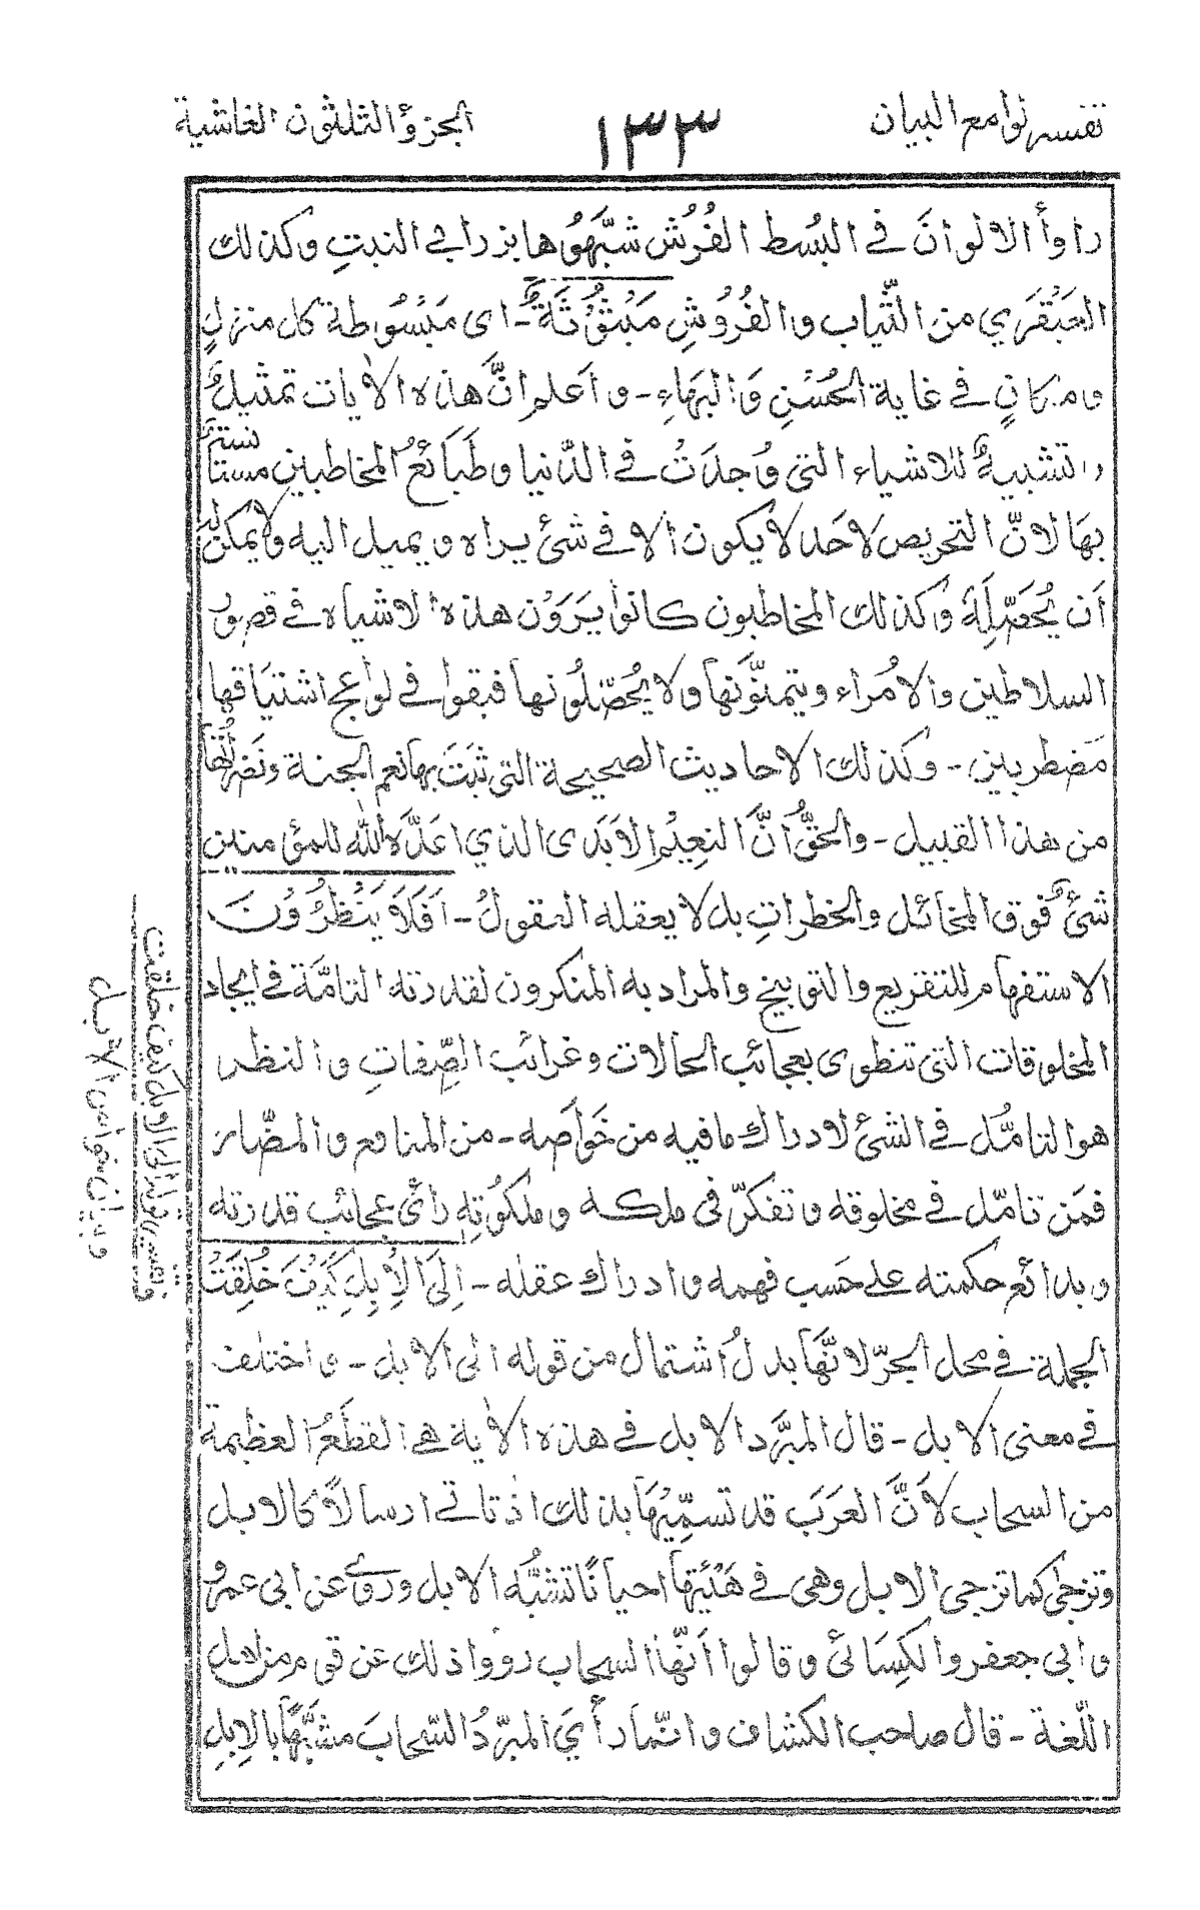 تفسير لوامع البيان ١٣٣ الجزؤ الثلثون الغاشية
راوأ الالوانَ في البُسط الفُرُش شبَّهَوُها بزرابي النبتِ وكذلك
العَبْقَري من الثّياب والفُرُوشِ مَبْثُوْثَةٌ۔ اى مَبْسُوطة كل منزلٍ
ومكانٍ في غاية الحُسْنِ وَالبهَاءِ۔ واَعلم انَّ هذه الاٰيات تمثيلٌ
وتشبيهٌ للاشياء التى وُجِدَتْ في الدّنيا وطَبَائعُ المخاطبين مستانستر
بهَا لانّ التحريص لاحَد لا يكون الا في شئ يراه ويميل اليه ولا يمكن له
اَن يُحصّلَهٗ وكذلك المخاطبون كانوا يَرَوْن هذه الاشياء في قصور
السلاطين والامُراء ويتمنّونَها ولا يُحصّلُونها فبقوا في لواعج اشتيَاقها
مَضطربين۔ وكذلك الاحاديث الصحيحة التى ثبَتَ بها نعم الجنة ونَضرتُها
من هذا القبيل۔ والحقُّ اَنَّ النعِيْم الاَبَدى الذي اعَدَّهُ اللّٰه للمؤمنين
شئٌ فوق المخائل والخطراتِ بل لا يعقله العقولُ۔ اَفَلَا يَنْظُرُوْنَ
الاستفهام للتقريع والتوبيخ والمراد به المنكرون لقدرته التامَّة في ايجاد
المخلوقات التى تنطوى بعجائب الحالات وغرائب الصِّفاتِ والنظر
هو التامُّل في الشئ لادراك ما فيه من خَوَاصه۔ من المنافع والمضّار
فمَن تامّل في مخلوقه وتفكرّ فى ملكه وملكوُتهِ رأى عجائب قدرته
وبدائع حكمته على حَسب فهمه وادراك عقله۔ اِلَى الْاِبِلِ كَيْفَ خُلِقَتْ
الجملة في محل الجرّ لانّها بدلُ اشتمال من قوله الى الابل۔ واختلف
في معنى الابل۔ قال المبرَّد الابل في هذه الاٰية هي القطَعُ العظيمة
من السحاب لاَنَّ العَرَبَ قد تسمِّيْهَا بذلك اذ تاتي ارسالاً كالابل
وتزجٰى كما تزجى الابل وهى في هَيْئتِها احيانًا تشبُه الابل ورُوِيَ عن ابى عمرو
وابى جعفر والكِسَائى وقالوا اَنَّها السحاب روَوا ذلك عن قوم من اهل
اللّغة۔ قال صاحب الكشاف وانّما رأىَ المبرّدُ السّحابَ مشبَّهًا بالاِبِلِ
وتفسير قوله الى الابل كيف خلقت
وبيان خواص الابل